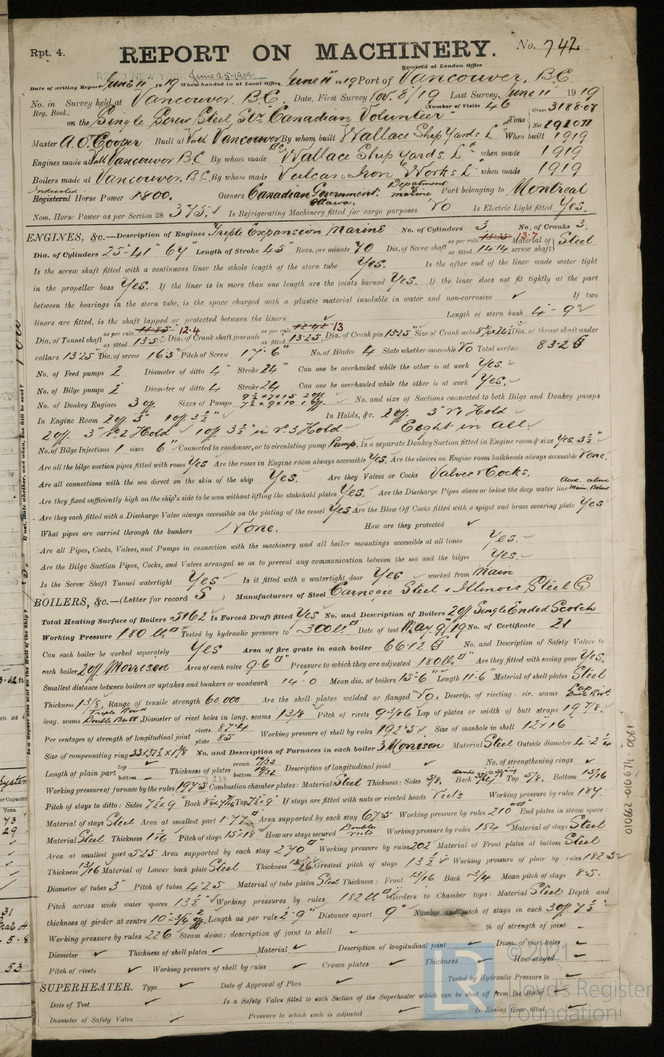 Rpt. 4.
REPORT ON MACHINERY.
No. 742
Received at London Office
June 25 1919
Date of writing Report June 11 1919 When handed in at Local Office June 11 1919 Port of Vancouver, B.C.
No. in Survey held at Vancouver, B.C. Date, First Survey Nov. 8/19 Last Survey, June 11 1919
Reg. Book. (Number of Visits 46
on the Single Screw Steel Str "Canadian Volunteer" Tons Gross 3188.07 Net
Master A.O. Cooper Built at North Vancouver BC By whom built Wallace Ship Yards Ld When built 1919
Engines made at North Vancouver B.C. By whom made Wallace Ship Yards Ld when made 1919
Boilers made at Vancouver, B.C. By whom made Vulcan Iron Works Ld when made 1919
Indicated
Registered Horse Power 1800. Owners Canadian Government, Department Marine Ottawa. Port belonging to Montreal
Nom. Horse Power as per Section 28 375. Is Refrigerating Machinery fitted for cargo purposes No Is Electric Light fitted Yes.
ENGINES, &c.—Description of Engines Triple Expansion Marine No. of Cylinders 3. No. of Cranks 3.
Dia. of Cylinders 25" 41" 69" Length of Stroke 45" Revs. per minute 70 Dia. of Screw shaft as per rule 13.7 as fitted 14 1/4 Material of screw shaft Steel
Is the screw shaft fitted with a continuous liner the whole length of the stern tube Yes. Is the after end of the liner made water tight
in the propeller boss Yes. If the liner is in more than one length are the joints burned Yes. If the liner does not fit tightly at the part
between the bearings in the stern tube, is the space charged with a plastic material insoluble in water and non-corrosive ✓ If two
liners are fitted, is the shaft lapped or protected between the liners ✓ Length of stern bush 4'-9"
Dia. of Tunnel shaft as per rule 12.4 as fitted 13.5 Dia. of Crank shaft journals as per rule 13 as fitted 13.25 Dia. of Crank pin 13.25" Size of Crank webs Dia. of thrust shaft under
collars 13.25 Dia. of screw 16'3" Pitch of Screw 17'-6" No. of Blades 4 State whether moveable No Total surface 83.2
No. of Feed pumps 2 Diameter of ditto 4" Stroke 24" Can one be overhauled while the other is at work Yes.
No. of Bilge pumps 2 Diameter of ditto 4" Stroke 24 Can one be overhauled while the other is at work Yes.
No. of Donkey Engines 3 off Sizes of Pumps No. and size of Suctions connected to both Bilge and Donkey pumps
In Engine Room 2 off 3" 1 off 3 1/2" In Holds, &c. 2 off 3" No 1 Hold
2 off 3" No 2 Hold 1 off 3 1/2" in No 3 Hold Eight in all
No. of Bilge Injections 1 sizes 6" Connected to condenser, or to circulating pump Pump. Is a separate Donkey Suction fitted in Engine room & size Yes. 3 1/2"
Are all the bilge suction pipes fitted with roses Yes Are the roses in Engine room always accessible Yes. Are the sluices on Engine room bulkheads always accessible None.
Are all connections with the sea direct on the skin of the ship Yes. Are they Valves or Cocks Valves & Cocks.
Are they fixed sufficiently high on the ship's side to be seen without lifting the stokehold plates Yes. Are the Discharge Pipes above or below the deep water line Aux. above Main Below
Are they each fitted with a Discharge Valve always accessible on the plating of the vessel Yes Are the Blow Off Cocks fitted with a spigot and brass covering plate Yes
What pipes are carried through the bunkers None. How are they protected ✓
Are all Pipes, Cocks, Valves, and Pumps in connection with the machinery and all boiler mountings accessible at all times Yes.
Are the Bilge Suction Pipes, Cocks, and Valves arranged so as to prevent any communication between the sea and the bilges Yes.
Is the Screw Shaft Tunnel watertight Yes Is it fitted with a watertight door Yes worked from Main
BOILERS, &c.—(Letter for record S) Manufacturers of Steel Carnegie Steel & Illinois Steel Co
Total Heating Surface of Boilers 5162 Is Forced Draft fitted Yes No. and Description of Boilers 2 off Single Ended Scotch
Working Pressure 180 lbs Tested by hydraulic pressure to 300 lbs Date of test May 9/19 No. of Certificate 21
Can each boiler be worked separately Yes Area of fire grate in each boiler 66.12 No. and Description of Safety Valves to
each boiler 2 off Morrison Area of each valve 9.6 Pressure to which they are adjusted 180 lbs Are they fitted with easing gear Yes.
Smallest distance between boilers or uptakes and bunkers or woodwork 14.0 Mean dia. of boilers 15'-6" Length 11.6" Material of shell plates Steel
Thickness 1 3/8 Range of tensile strength 60,000 Are the shell plates welded or flanged No. Descrip. of riveting: cir. seams
long. seams Triple Riv Double Butt Diameter of rivet holes in long. seams 1 3/8 Pitch of rivets 9 3/16 Lap of plates or width of butt straps 19 7/8
Per centages of strength of longitudinal joint rivets 87.4 plate 85 Working pressure of shell by rules 192.5 Size of manhole in shell 12" x 16"
Size of compensating ring No. and Description of Furnaces in each boiler 3 Morison Material Steel Outside diameter
Length of plain part top bottom Thickness of plates crown bottom Description of longitudinal joint ✓ No. of strengthening rings
Working pressure of furnace by the rules 197.5 Combustion chamber plates: Material Steel Thickness: Sides 5/8, Back Top 5/8. Bottom 13/16
Pitch of stays to ditto: Sides 7 1/2 x 9 Back Top If stays are fitted with nuts or riveted heads Working pressure by rules 189
Material of stays Steel Area at smallest part 1.77 Area supported by each stay 67.5 Working pressure by rules 210 End plates in steam space:
Material Steel Thickness Pitch of stays 15 x 18 How are stays secured Double nuts Working pressure by rules 184 Material of stays Steel
Area at smallest part 5.25 Area supported by each stay 270 Working pressure by rules 202 Material of Front plates at bottom Steel
Thickness 13/16 Material of Lower back plate Steel Thickness Greatest pitch of stays 13 1/2 Working pressure of plate by rules 182.5
Diameter of tubes 3" Pitch of tubes 4.25 Material of tube plates Steel Thickness: Front 13/16 Back 3/4 Mean pitch of stays 8.5.
Pitch across wide water spaces 13 1/2 Working pressures by rules 182 Girders to Chamber tops: Material Steel Depth and
thickness of girder at centre Length as per rule 2'.9" Distance apart 9" Number and pitch of stays in each 3 off 7 1/2
Working pressure by rules 226 Steam dome: description of joint to shell ✓ % of strength of joint
Diameter ✓ Thickness of shell plates ✓ Material ✓ Description of longitudinal joint ✓ Diam. of rivet holes
Pitch of rivets ✓ Working pressure of shell by rules ✓ Crown plates ✓ Thickness ✓ How stayed
SUPERHEATER. Type ✓ Date of Approval of Plan Tested by Hydraulic Pressure to
Date of Test ✓ Is a Safety Valve fitted to each Section of the Superheater which can be shut off from the Boiler
Diameter of Safety Valve ✓ Pressure to which each is adjusted ✓ Is Easing Gear fitted
© 2021
Lloyd's Register
Foundation